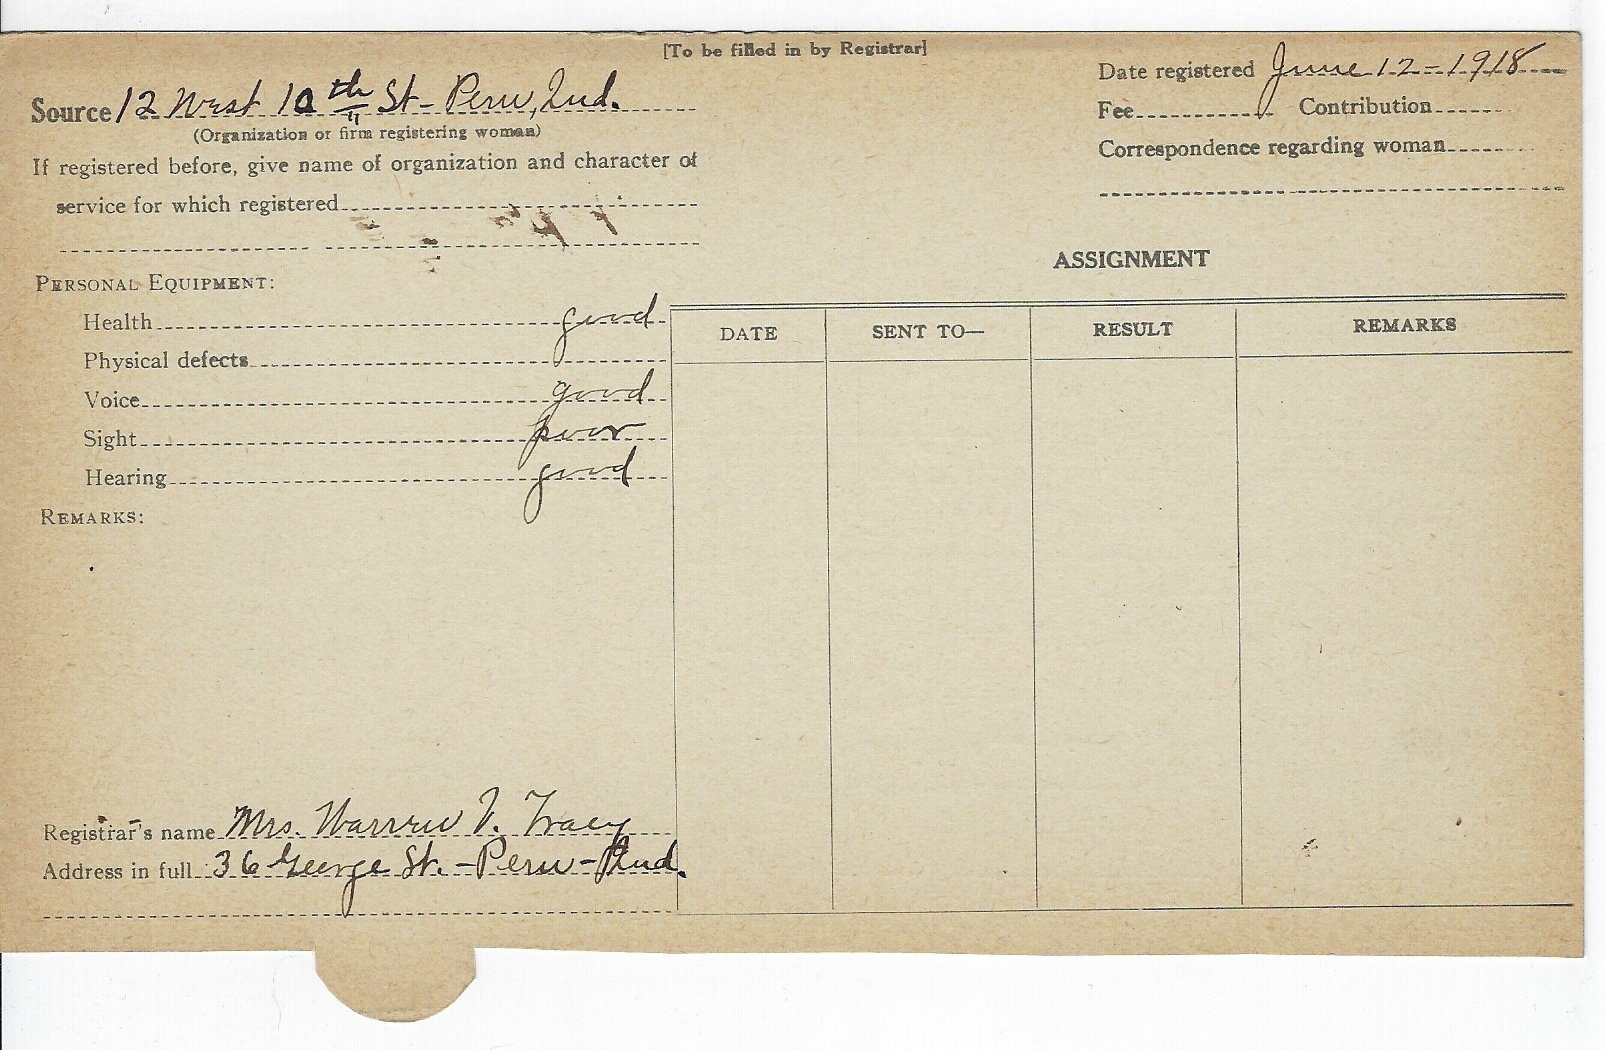 [To be filled in by Registrar]
Date registered June 12-1918
Source 12 West 10th St- Peru, Ind.
(Organization or firm registering woman)
Fee Contribution
If registered before, give name of organization and character of
service for which registered
Correspondence regarding woman
ASSIGNMENT
PERSONAL EQUIPMENT:
Health good
Physical defects
Voice good
Sight poor
Hearing good
REMARKS:
DATE SENT TO— RESULT REMARKS
Registrar's name Mrs. Warren V. Tracy
Address in full 36 George St.-Peru-Ind.